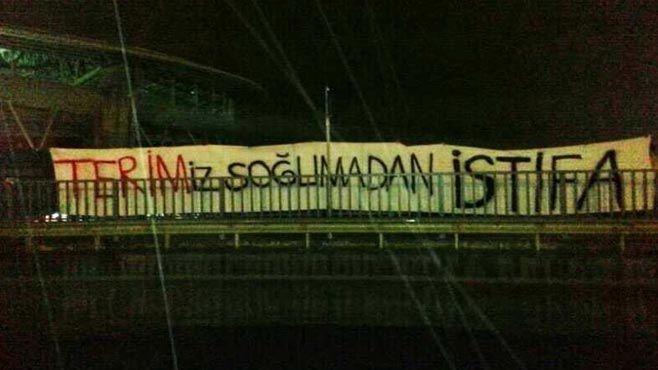 TERİMİZ SOĞUMADAN İSTİFA